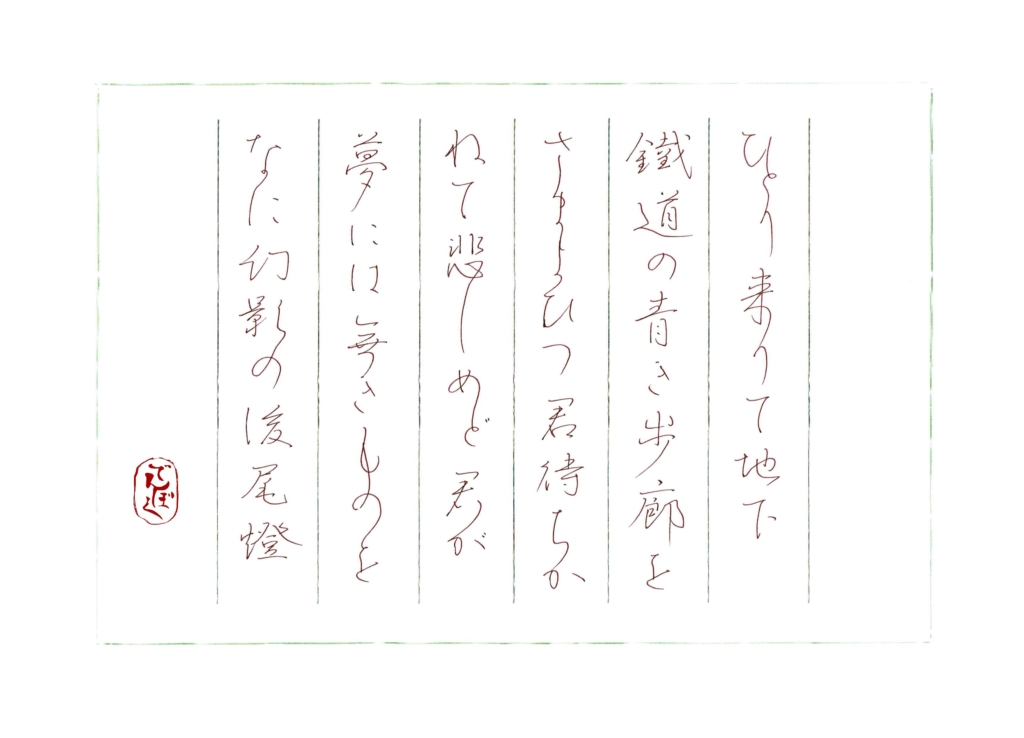 ひとり来りて地下
鐵道の青き歩廊を
さまよひつ君待ちか
ねて悲しめど君が
夢には無きものを
なに幻影の後尾燈